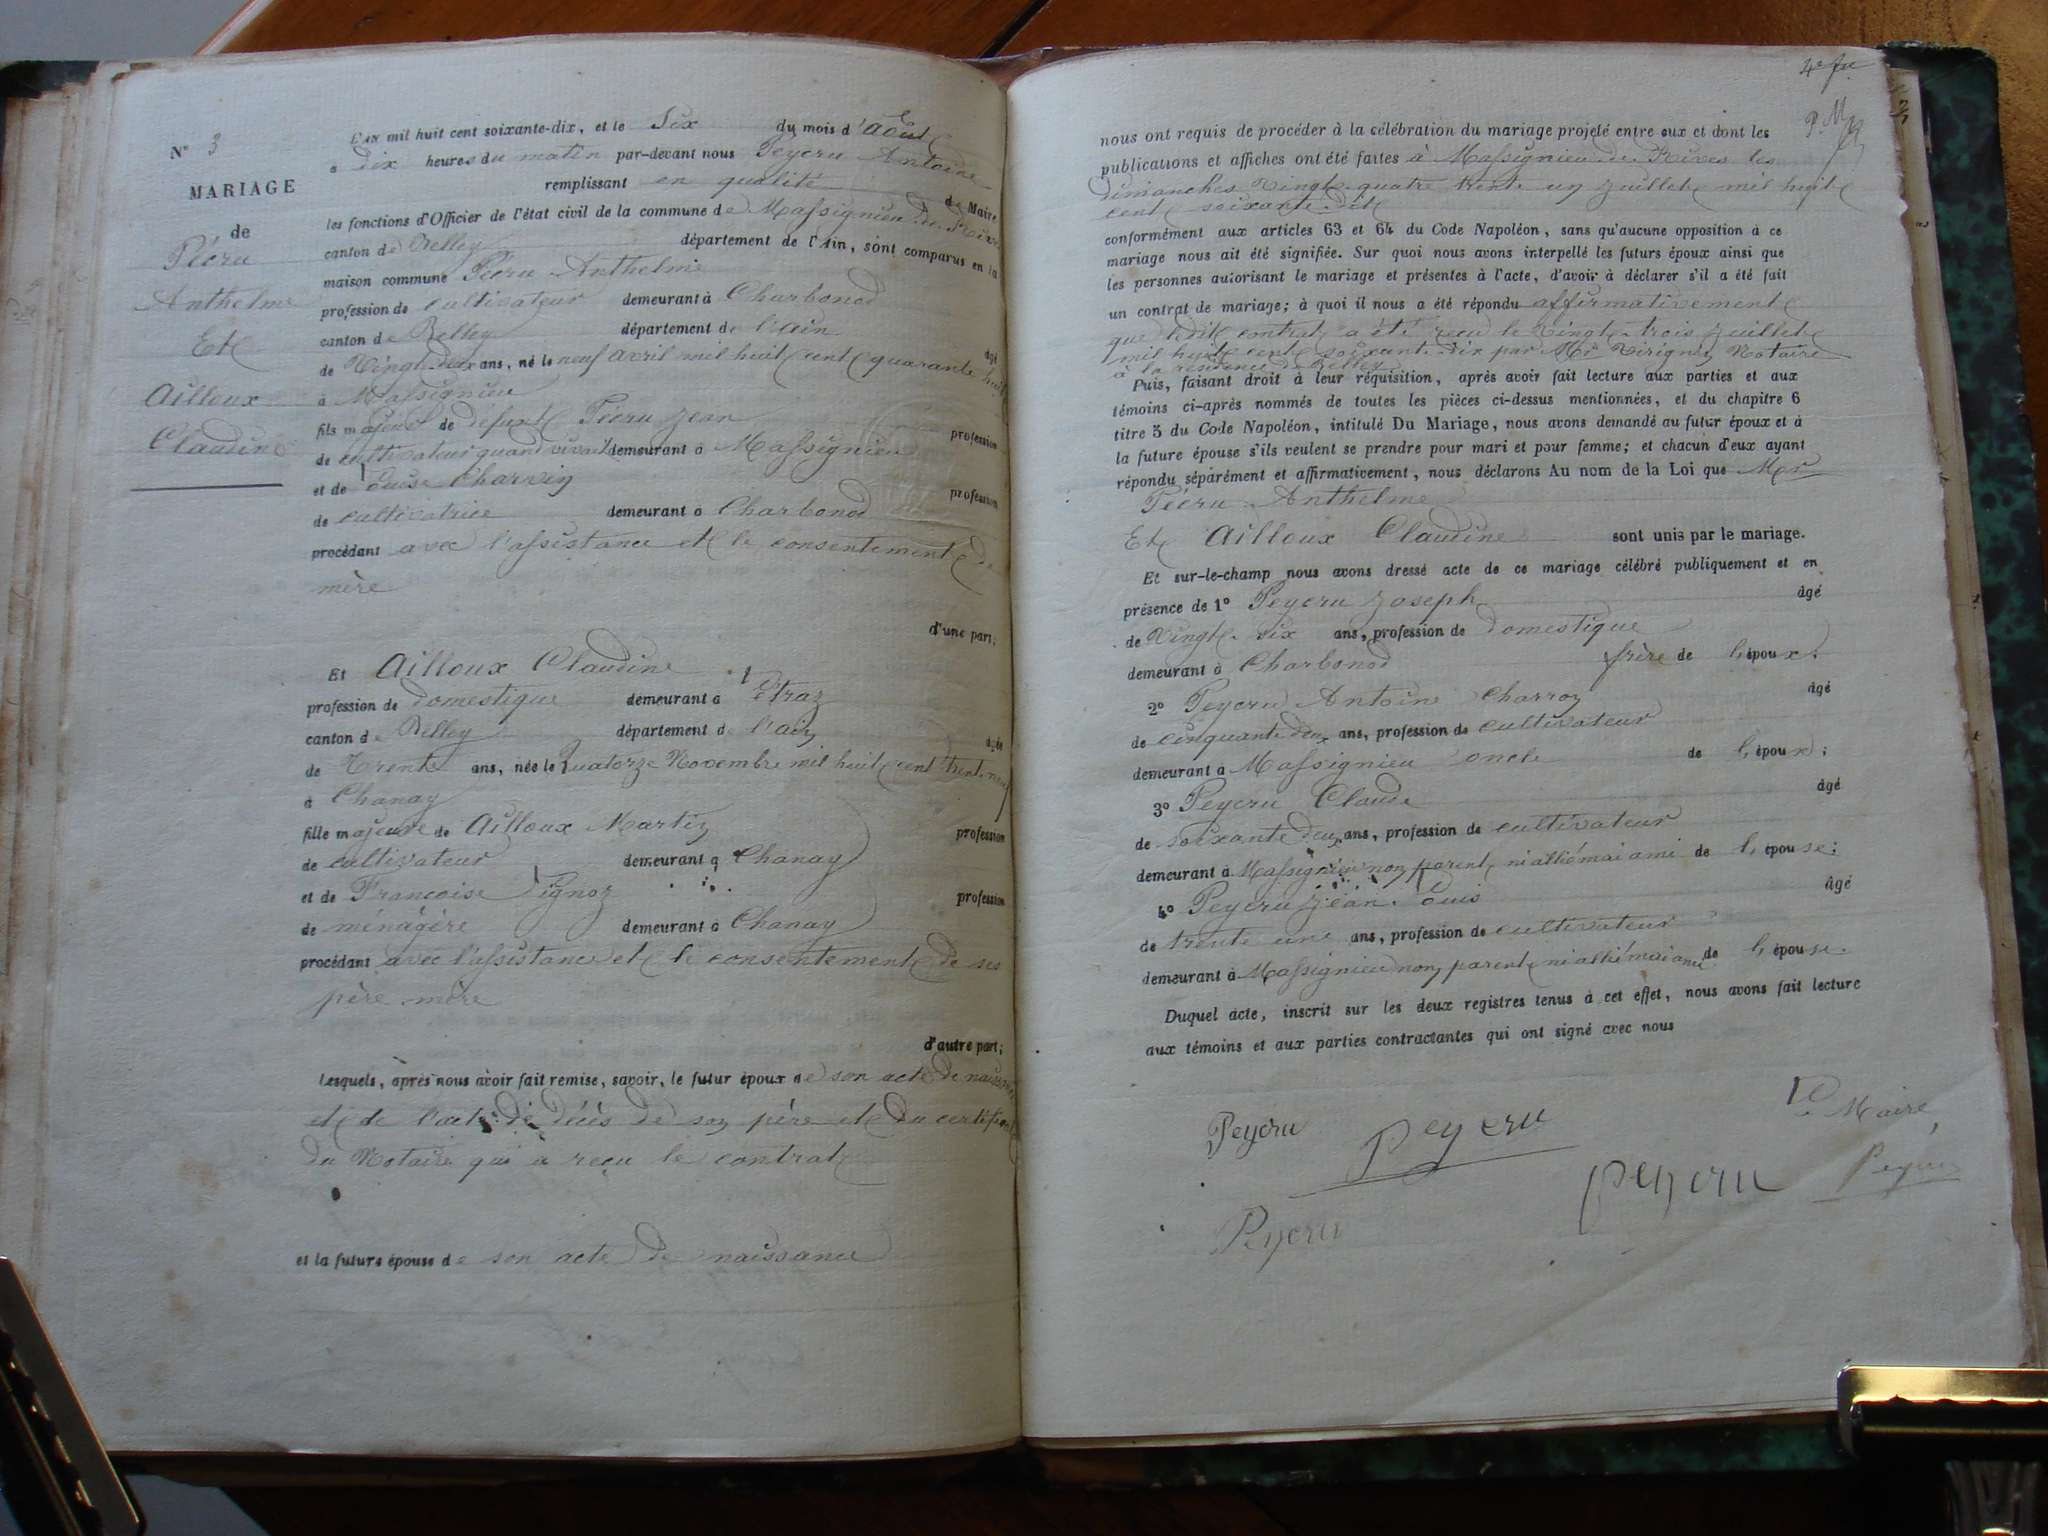 N° 3
MARIAGE
de
Pécru
Anthelme
Et
Ailloux
Claudine
L'AN mil huit cent soixante-dix, et le Six du mois d'Août
à dix heures du matin par-devant nous Peycru Antoine
remplissant en qualité de Maire
les fonctions d'Officier de l'état civil de la commune de Massignieu de Rives
canton de Belley département de l'Ain, sont comparus en la
maison commune Pécru Anthelme
profession de cultivateur demeurant à Charbonod
canton de Belley département de l'ain âgé
de Vingt-deux ans, né le neuf avril mil huit cent quarante huit
à Massignieu
fils majeur de defunt Pécru Jean profession
de cultivateur quand vivait demeurant à Massignieu
et de Louise Charvin profession
de cultivatrice demeurant à Charbonod
procédant avec l'assistance et le consentement de
mère
d'une part;
Et Ailloux Claudine
profession de domestique demeurant à Etraz
canton de Belley département de l'ain âgée
de Trente ans, née le Quatorze Novembre mil huit cent trente neuf
à Chanay
fille majeure de Ailloux Martin profession
de cultivateur demeurant à Chanay
et de Francoise Pignoz profession
de ménagère demeurant à Chanay
procédant avec l'assistance et le consentement de ses
père mère
d'autre part;
Lesquels, après nous avoir fait remise, savoir, le futur époux de son acte de naissance
et de l'acte de décès de son père et du certificat
du Notaire qui a reçu le contrat
et la future épouse de son acte de naissance
nous ont requis de procéder à la célébration du mariage projeté entre eux et dont les
publications et affiches ont été faites à Massignieu de Rives les
dimanches Vingt-quatre trente un Juillet mil huit
cent soixante dix
conformément aux articles 63 et 64 du Code Napoléon, sans qu'aucune opposition à ce
mariage nous ait été signifiée. Sur quoi nous avons interpellé les futurs époux ainsi que
les personnes autorisant le mariage et présentes à l'acte, d'avoir à déclarer s'il a été fait
un contrat de mariage; à quoi il nous a été répondu affirmativement
que ledit contrat a été reçu le Vingt-trois Juillet
mil huit cent soixante dix par Mr Virignin Notaire
à la résidence de Belley
Puis, faisant droit à leur réquisition, après avoir fait lecture aux parties et aux
témoins ci-après nommés de toutes les pièces ci-dessus mentionnées, et du chapitre 6
titre 5 du Code Napoléon, intitulé Du Mariage, nous avons demandé au futur époux et à
la future épouse s'ils veulent se prendre pour mari et pour femme; et chacun d'eux ayant
répondu séparément et affirmativement, nous déclarons Au nom de la Loi que Mer
Pécru Anthelme
Et Ailloux Claudine sont unis par le mariage.
Et sur-le-champ nous avons dressé acte de ce mariage célébré publiquement et en
présence de 1° Peycru Joseph âgé
de Vingt-six ans, profession de domestique
demeurant à Charbonod frère de l'époux.
2° Peycru Antoine Charroz âgé
de cinquante deux ans, profession de cultivateur
demeurant à Massignieu oncle de l'époux;
3° Peycru Claude âgé
de soixante deux ans, profession de cultivateur
demeurant à Massignieu non parent ni allié mai ami de l'épouse;
4° Peycru Jean Louis âgé
de trente une ans, profession de cultivateur
demeurant à Massignieu non parent ni allié mai ami de l'épouse.
Duquel acte, inscrit sur les deux registres tenus à cet effet, nous avons fait lecture
aux témoins et aux parties contractantes qui ont signé avec nous
Le Maire
Peycru Peycru
Peycru Peycru
Peycru